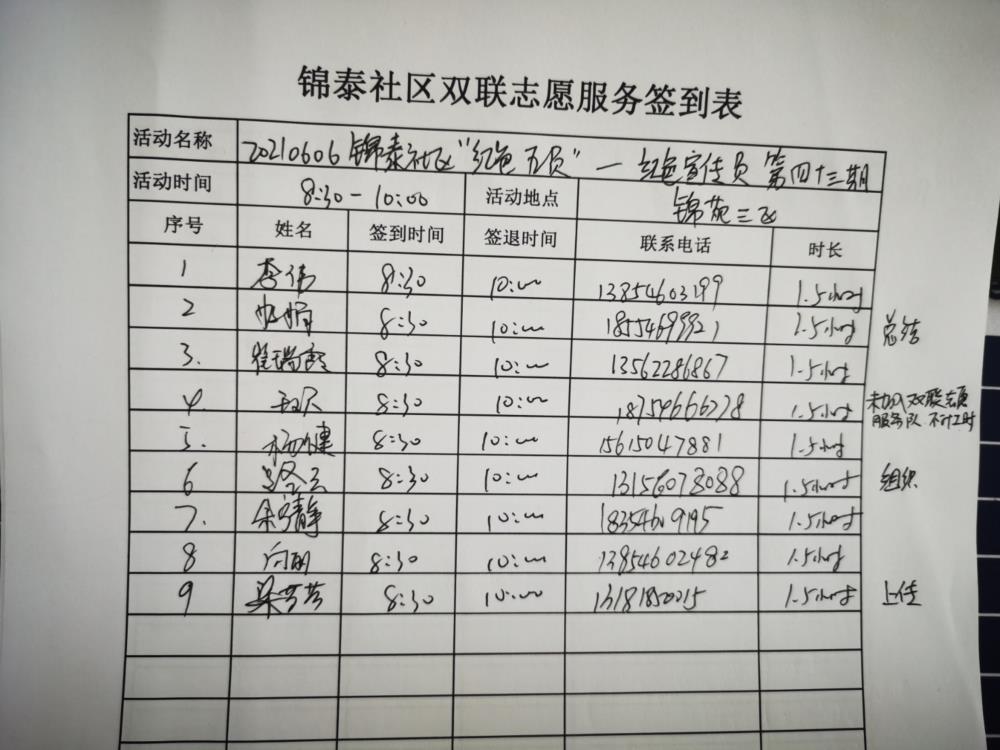 锦泰社区双联志愿服务签到表
活动名称 20210606 锦泰社区“红色五员”—红色宣传员 第四十三期
活动时间 8:30-10:00 活动地点 锦苑三区
序号 姓名 签到时间 签退时间 联系电话 时长
1 李伟 8:30 10:00 13854603199 1.5小时
2 8:30 10:00 18554699921 1.5小时 总结
3. 崔瑞 8:30 10:00 13562286867 1.5小时
4. 8:30 10:00 18754666778 1.5小时 未加入双联志愿
服务队 不计工时
5. 杨健 8:30 10:00 15615047881 1.5小时
6 8:30 10:00 13156073088 1.5小时 组织
7. 静 8:30 10:00 1.5小时
8 向明 8:30 10:00 13854602482 1.5小时
9 梁芳芳 8:30 10:00 13181850015 1.5小时 上传